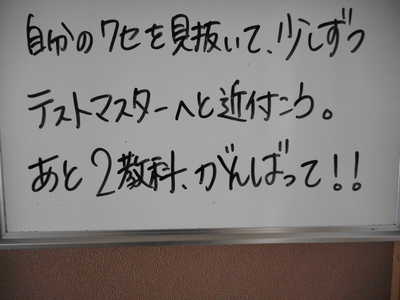 自分のクセを見抜いて、少しずつ
テストマスターへと近付こう。
あと2教科、がんばって!!